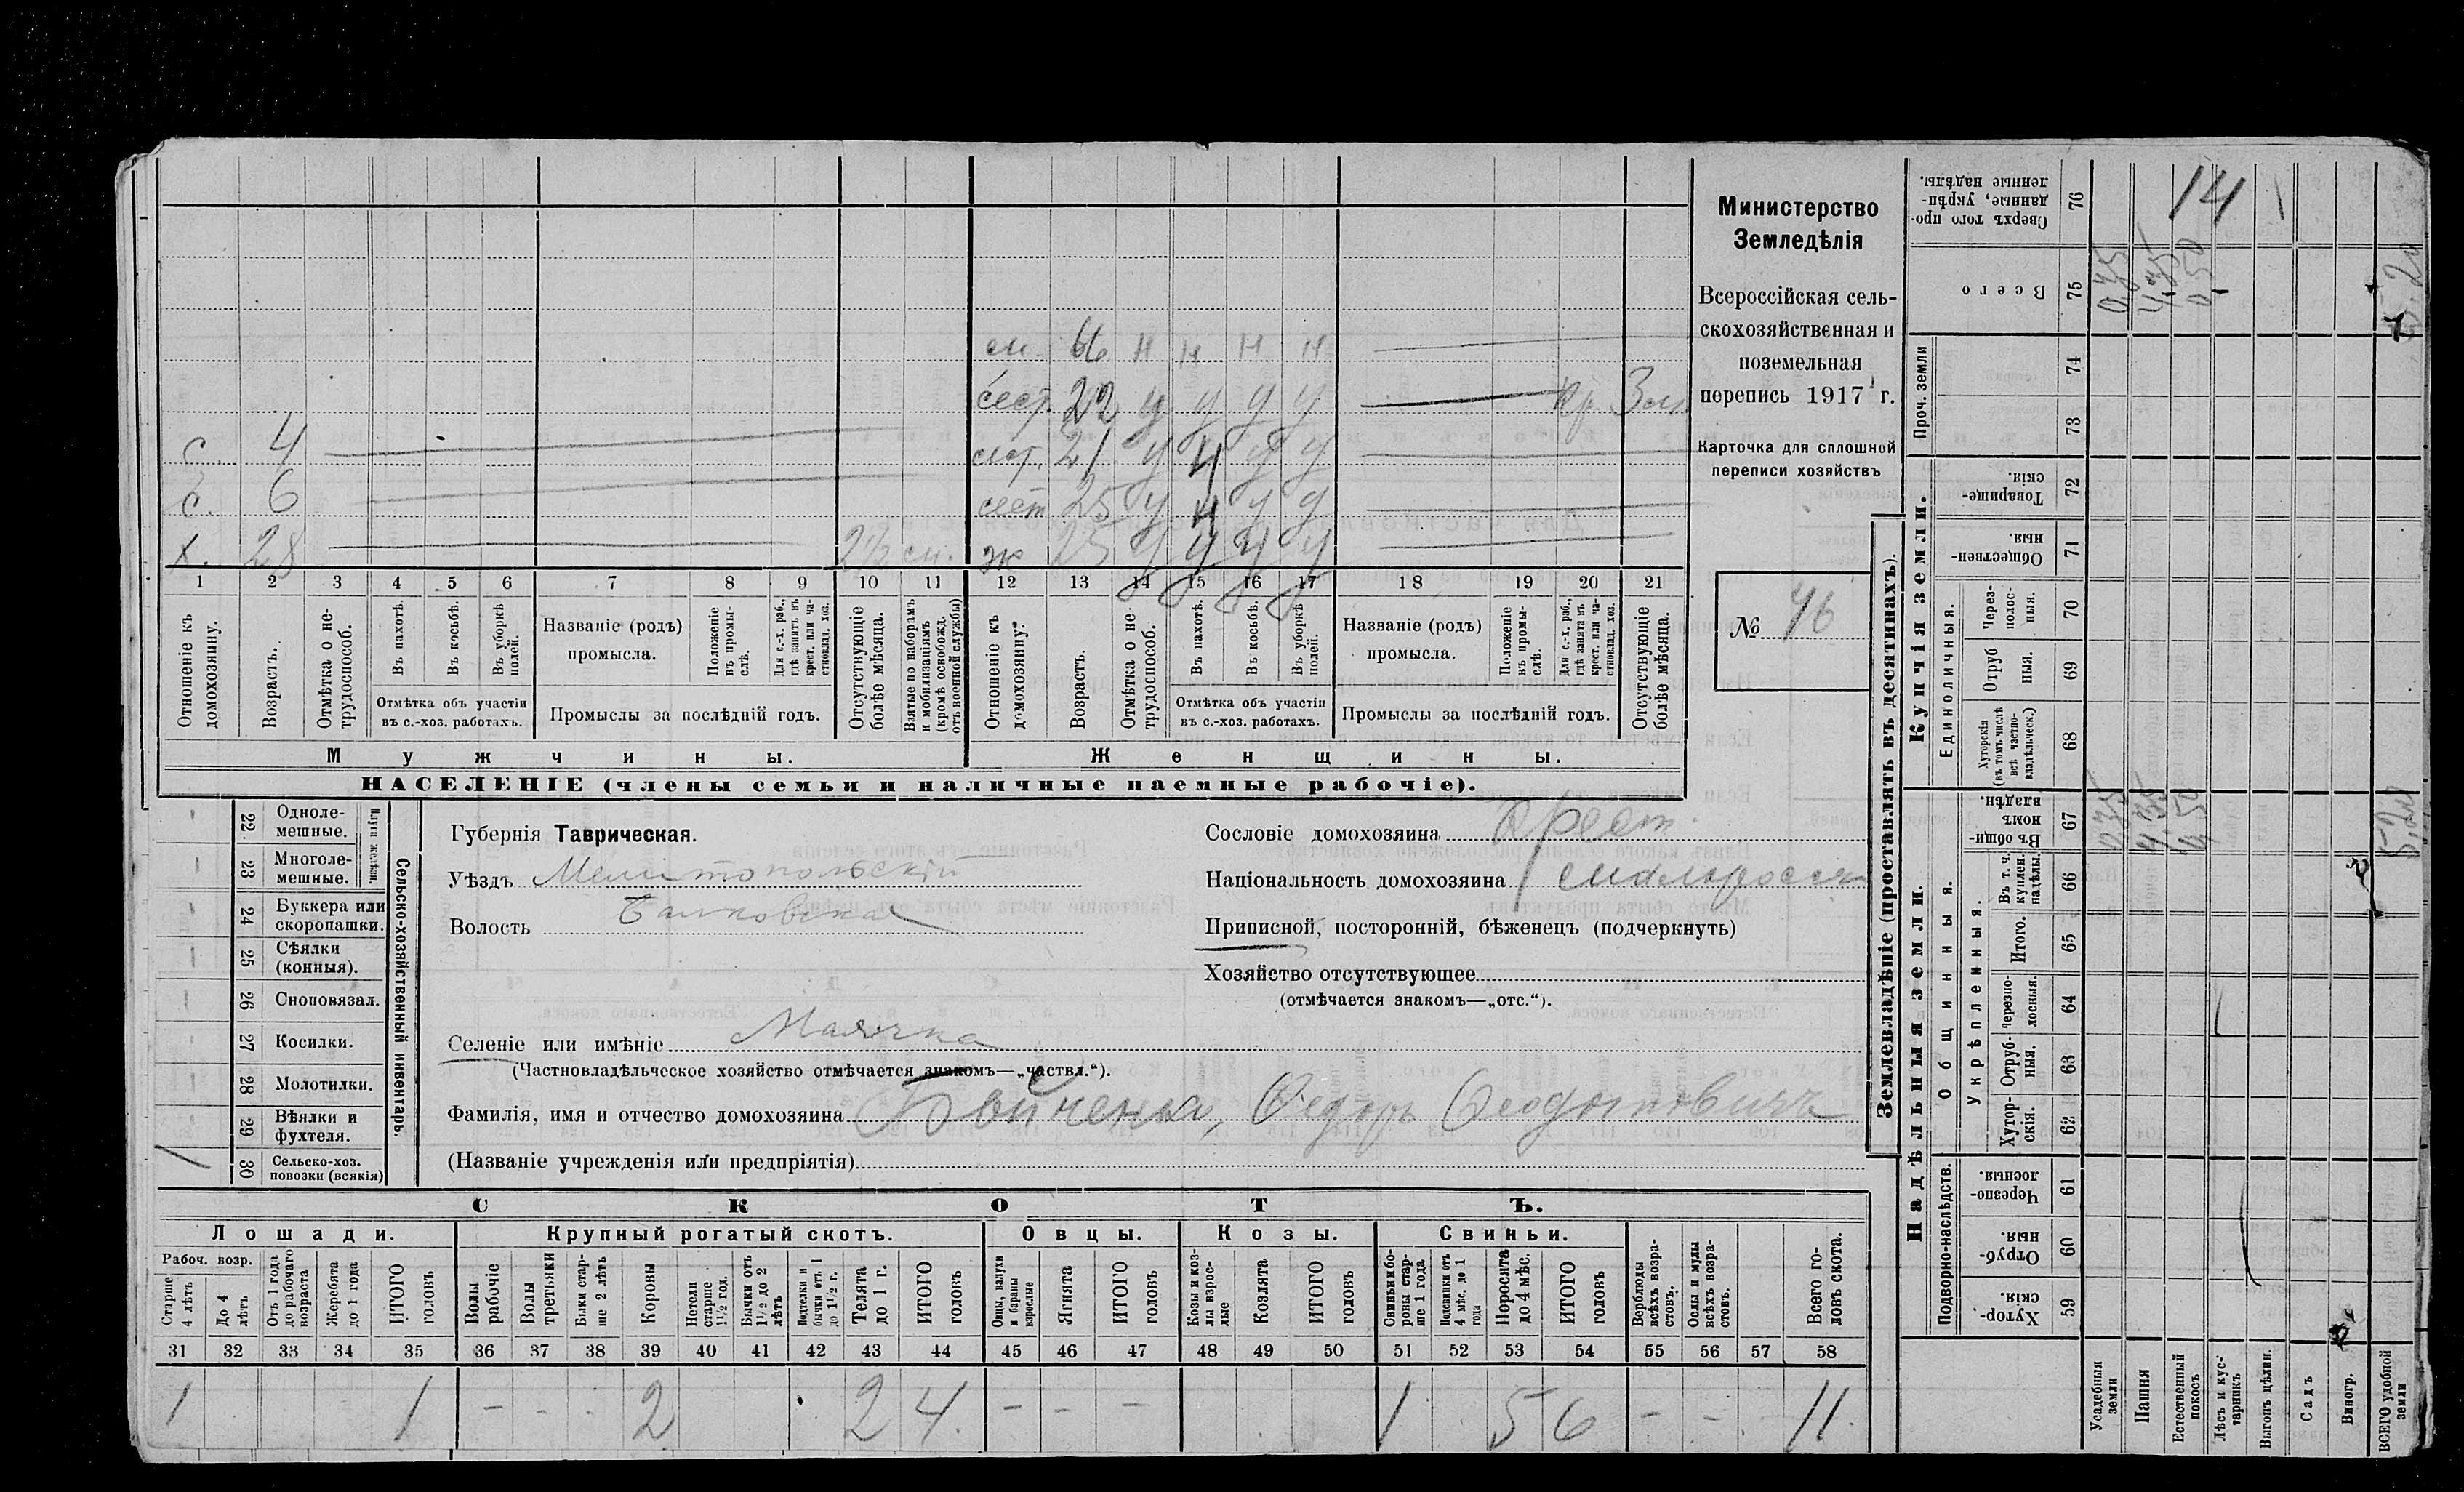 Министерство
Земледѣлія
Всероссійская сель-
скохозяйственная и
поземельная
перепись 1917 г.
Карточка для сплошной
переписи хозяйствъ
№ 46
с. 4
с. 6
х. 28 2½
66 н н н н
сест. 22 у у у у кр
сест. 21 у у у у
сест 25 у у у у
ж 25 у у у у
1 2 3 4 5 6 7 8 9 10 11 12 13 14 15 16 17 18 19 20 21
Отношеніе къ домохозяину.
Возрастъ.
Отмѣтка о не-трудоспособ.
Въ пахотѣ.
Въ косьбѣ.
Въ уборкѣ полей.
Отмѣтка объ участіи въ с.-хоз. работахъ.
Названіе (родъ) промысла.
Положеніе въ промы-слѣ.
Для с.-х. раб., гдѣ занятъ въ крест. или ча-стновлад. хоз.
Промыслы за послѣдній годъ.
Отсутствующіе болѣе мѣсяца.
Взятые по наборамъ и мобилизаціямъ (кромѣ освобожд. отъ военной службы)
Отношеніе къ домохозяину.
Возрастъ.
Отмѣтка о не трудоспособ.
Въ пахотѣ.
Въ косьбѣ.
Въ уборкѣ полей.
Отмѣтка объ участіи въ с.-хоз. работахъ.
Названіе (родъ) промысла.
Положеніе въ промы-слѣ.
Для с.-х. раб., гдѣ занята въ крест. или ча-стновлад. хоз.
Промыслы за послѣдній годъ.
Отсутствующіе болѣе мѣсяца.
Мужчины.
Женщины.
НАСЕЛЕНІЕ (члены семьи и наличные наемные рабочіе).
22 Одноле-мешные.
23 Многоле-мешные.
Плуги желѣзн.
24 Буккера или скоропашки.
25 Сѣялки (конныя).
26 Сноповязал.
27 Косилки.
28 Молотилки.
29 Вѣялки и фухтеля.
1 30 Сельско-хоз. повозки (всякія)
Сельско-хозяйственный инвентарь.
Губернія Таврическая.
Уѣздъ Мелитопольскій
Волость
Селеніе или имѣніе Маячка
(Частновладѣльческое хозяйство отмѣчается знакомъ—„частвл.“).
Фамилія, имя и отчество домохозяина Федоръ
(Названіе учрежденія или предпріятія)
Сословіе домохозяина Крест.
Національность домохозяина малоросс
Приписной, посторонній, бѣженецъ (подчеркнуть)
Хозяйство отсутствующее
(отмѣчается знакомъ—„отс.“).
СКОТЪ.
Лошади.
Крупный рогатый скотъ.
Овцы.
Козы.
Свиньи.
Рабоч. возр.
Старше 4 лѣтъ
До 4 лѣтъ
Отъ 1 года до рабочаго возраста
Жеребята до 1 года
ИТОГО головъ
Волы рабочіе
Волы третьяки
Быки стар-ше 2 лѣтъ
Коровы
Нетели старше 1½ год.
Бычки отъ 1½ до 2 лѣтъ
Подтелки и бычки отъ 1 до 1½ г.
Телята до 1 г.
ИТОГО головъ
Овцы, валухи и бараны взрослые
Ягнята
ИТОГО головъ
Козы и коз-лы взрос-лые
Козлята
ИТОГО головъ
Свиньи и бо-ровы стар-ше 1 года
Подсвинки отъ 4 мѣс. до 1 года
Поросята до 4 мѣс.
ИТОГО головъ
Верблюды всѣхъ возра-стовъ.
Ослы и мулы всѣхъ возра-стовъ.
Всего го-ловъ скота.
31 32 33 34 35 36 37 38 39 40 41 42 43 44 45 46 47 48 49 50 51 52 53 54 55 56 57 58
1 1 - - - 2 2 4 - - - 1 5 6 - - 11
Землевладѣніе (проставлять въ десятинахъ).
Надѣльныя земли.
Купчія земли.
Проч. земли
Подворно-наслѣдств.
Общинныя.
Укрѣпленныя.
Единоличныя.
Хутор-скія. 59
Отруб-ныя. 60
Черезпо-лосныя. 61
Хутор-скія. 62
Отруб-ныя. 63
Черезпо-лосныя. 64
Итого. 65
Въ т. ч. куплен. надѣлы. 66
Въ общин-номъ владѣн. 67
Хуторскія (въ томъ числѣ всѣ частно-владѣльческ.) 68
Отруб ныя. 69
Через-полос-ныя. 70
Обществен-ныя. 71
Товарище-скія. 72
73
74
Всего 75
Сверхъ того про-данные, укрѣп-ленные надѣлы. 76
14
Усадебныя земли
Пашня
Естественный покосъ
Лѣсъ и кус-тарникъ
Выгонъ цѣлин.
Садъ
Виногр.
ВСЕГО удобной земли